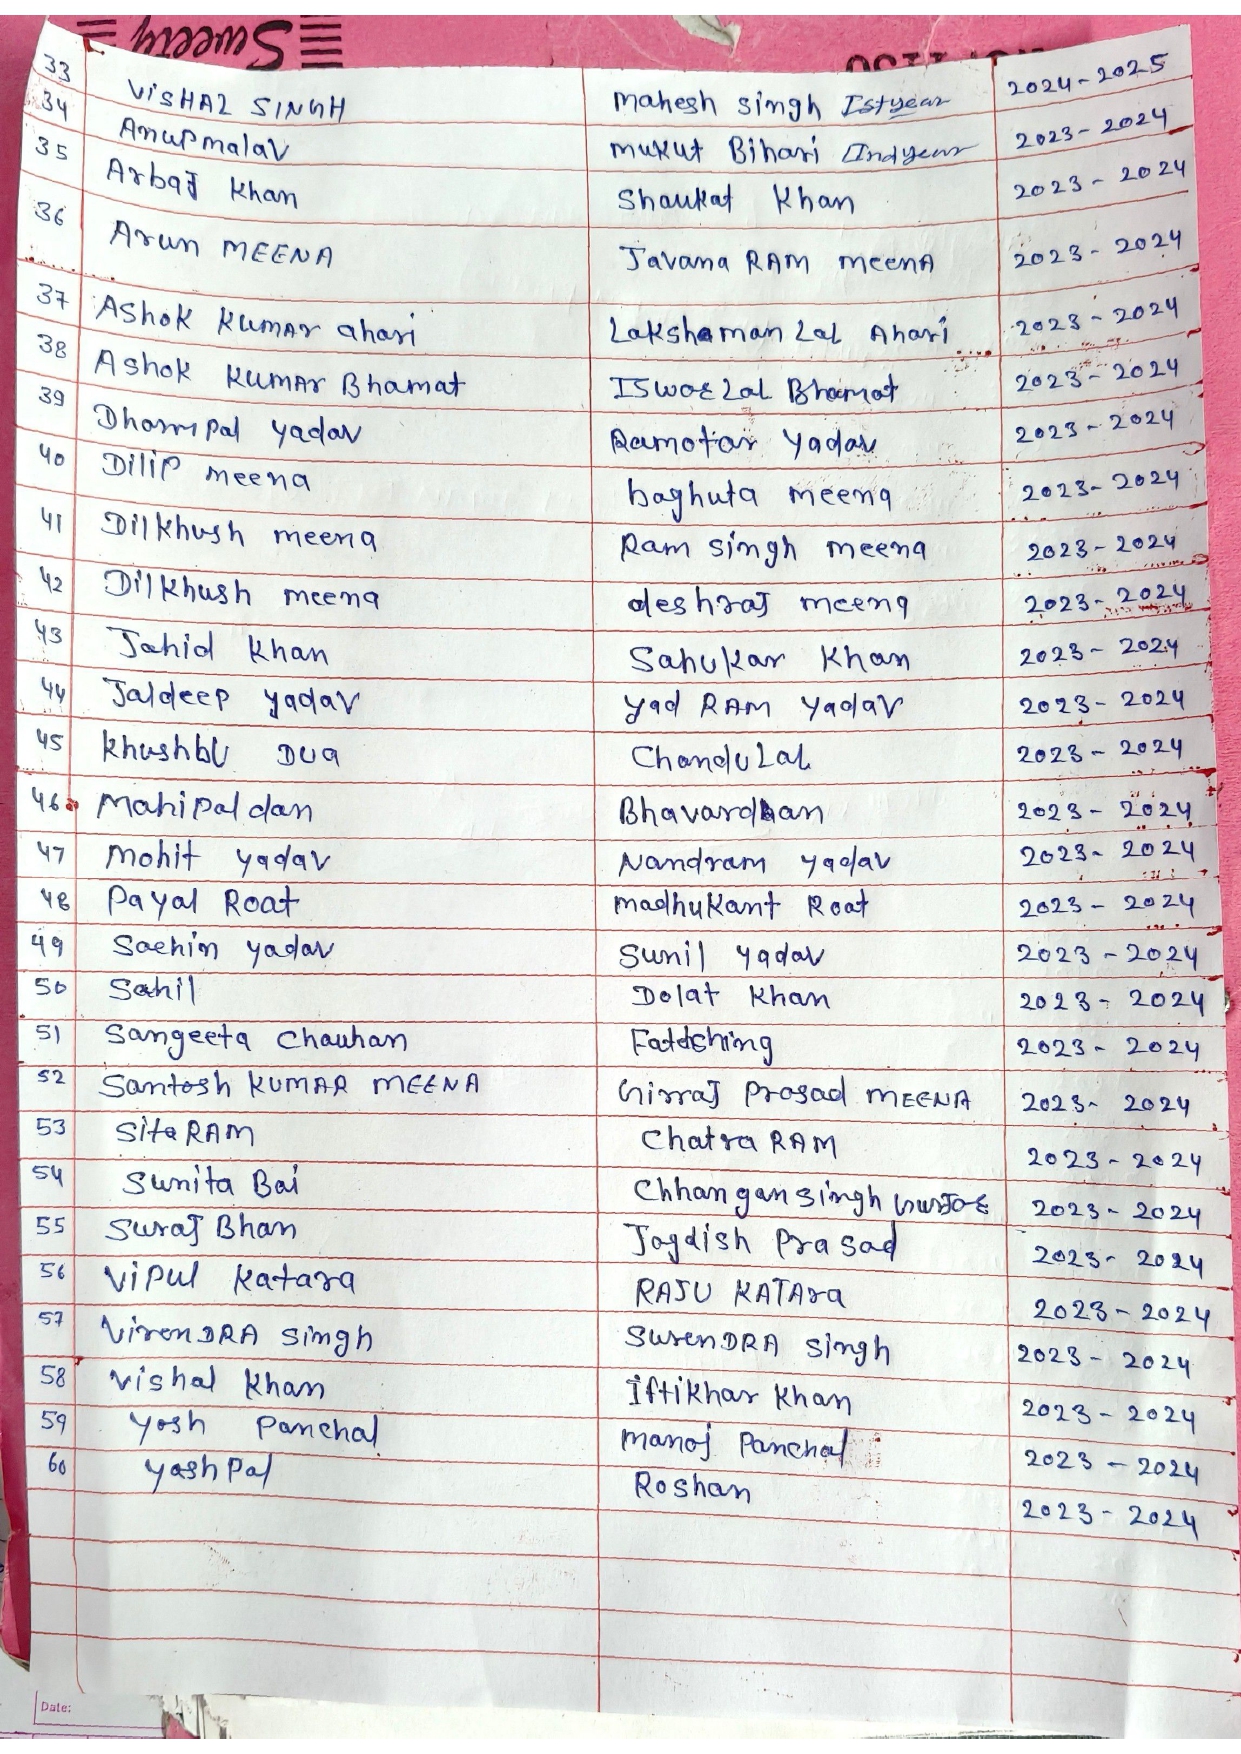 Sweety
33 ViSHAL SINGH mahesh singh Ist year 2024-2025
34 Anupmalav mukut Bihari IInd year 2023-2024
35 Arbaj Khan Shaukat Khan 2023-2024
36 Arun MEENA Javana RAM meenA 2023-2024
37 Ashok KUMAr ahari Lakshaman Lal Ahari 2023-2024
38 Ashok KUMAr Bhamat ISwar Lal Bhamat 2023-2024
39 Dharmpal yadav Ramotar yadav 2023-2024
40 Dilip meena baghuta meena 2023-2024
41 Dilkhush meena Ram singh meena 2023-2024
42 Dilkhush meena deshraj meena 2023-2024
43 Jahid Khan Sahukar Khan 2023-2024
44 Jaldeep yadav yad RAM yadav 2023-2024
45 khushbu DUA Chandu Lal 2023-2024
46 mahipal dan Bhavardhan 2023-2024
47 mohit yadav Nandram yadav 2023-2024
48 Payal Roat madhukant Roat 2023-2024
49 Sachin yadav Sunil yadav 2023-2024
50 Sahil Dolat Khan 2023-2024
51 Sangeeta Chauhan Fatehshing 2023-2024
52 Santosh KUMAR MEENA Girraj Prasad MEENA 2023-2024
53 Sita RAM Chatra RAM 2023-2024
54 Sunita Bai Chhangan Singh Gurjar 2023-2024
55 Suraj Bhan Jagdish Prasad 2023-2024
56 Vipul Katara RAJU KATAra 2023-2024
57 VirenDRA Singh SurenDRA Singh 2023-2024
58 Vishal Khan Iftikhar Khan 2023-2024
59 Yash Panchal manoj Panchal 2023-2024
60 yashpal Roshan 2023-2024
Date: